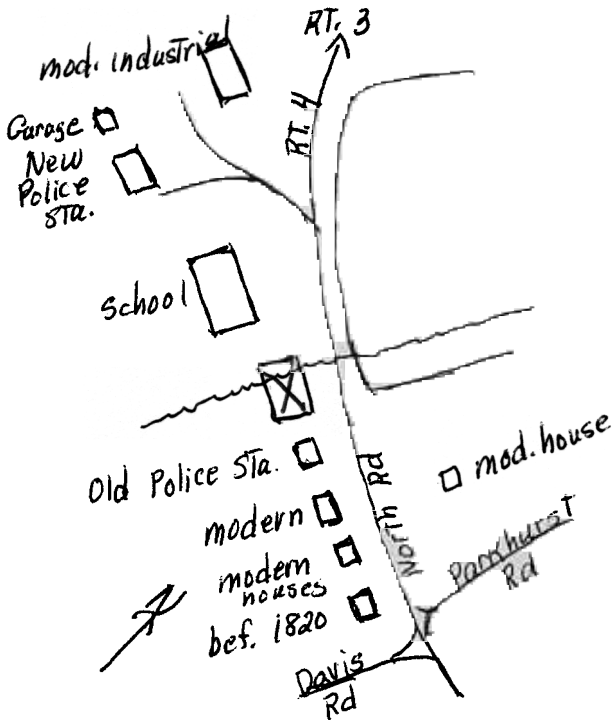 RT. 3
mod. industrial
RT. 4
Garage
New
Police
Sta.
School
X
Old Police Sta.
mod. house
modern
North Rd
modern
houses
Parkhurst
Rd
bef. 1820
Davis
Rd